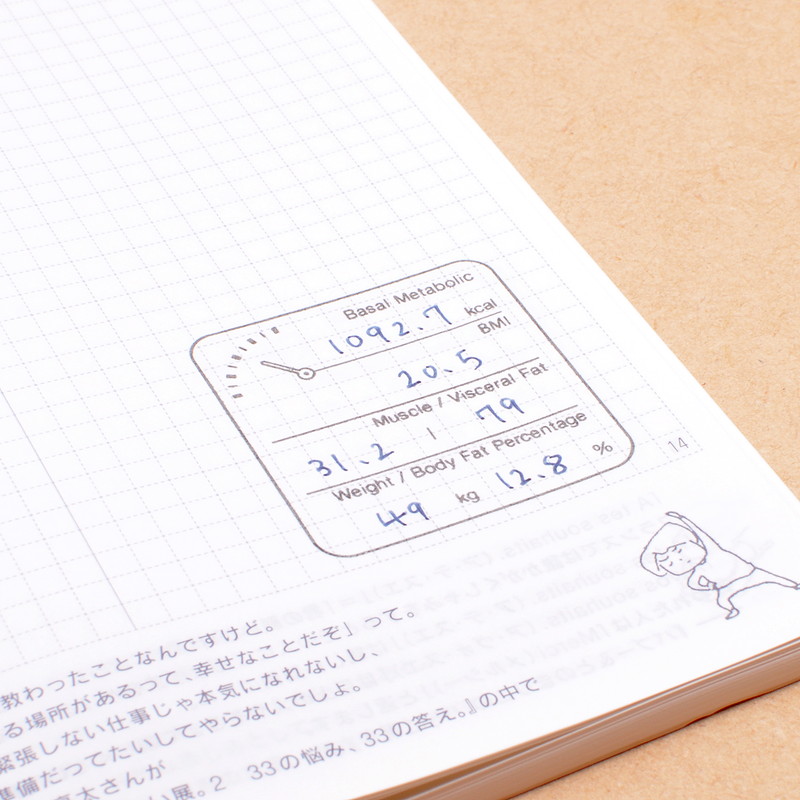 Basal Metabolic
1092.7 kcal
BMI
20.5
Muscle / Visceral Fat
31.2 / 79
Weight / Body Fat Percentage
49 kg 12.8 %
14
教わったことなんですけど。
る場所があるって、幸せなことだぞ」って。
緊張しない仕事じゃ本気になれないし、
準備だってたいしてやらないでしょ。
太さんが
い展。2 33の悩み、33の答え。』の中で